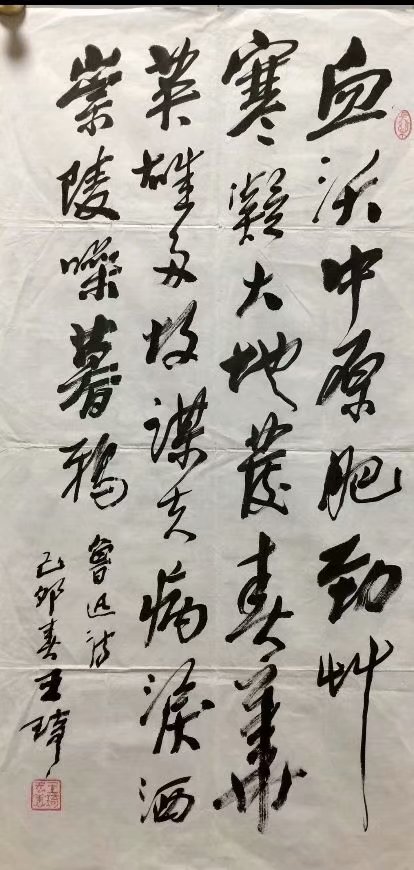 血沃中原肥劲艸
寒凝大地發春華
英雄多故谋夫病淚洒
崇陵噪暮鸦
鲁迅诗
己卯春王琦